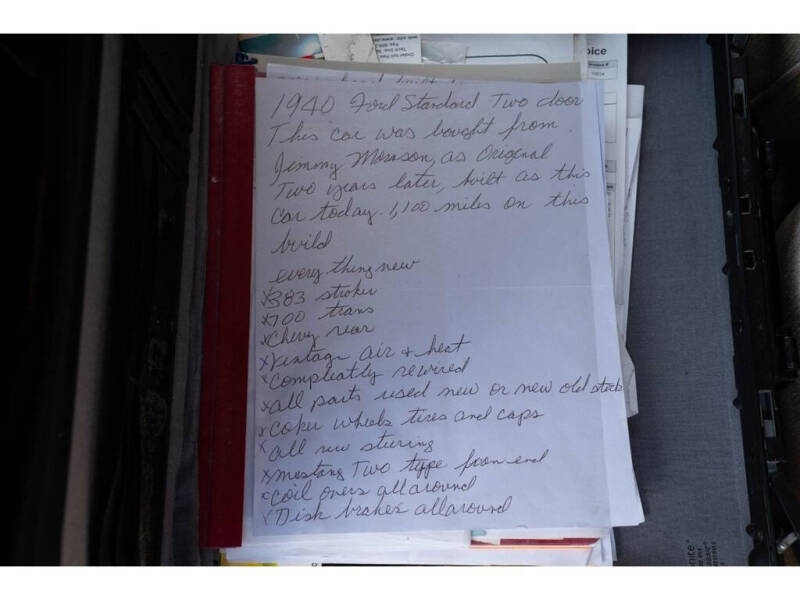 oice
1940 Ford Standard Two door
This car was bought from
Jimmy Morrson, as Original
Two years later, built as this
Car today. 1,100 miles on this
build
every thing new
x383 stroker
x700 trans
xChevy rear
xVintage air + heat
xCompleatly rewired
xall parts used new or new old stock
xCoker wheels tires and caps
xall new sturing
xmustang Two type froon end
xCoil overs all around
xDisk brakes allaround